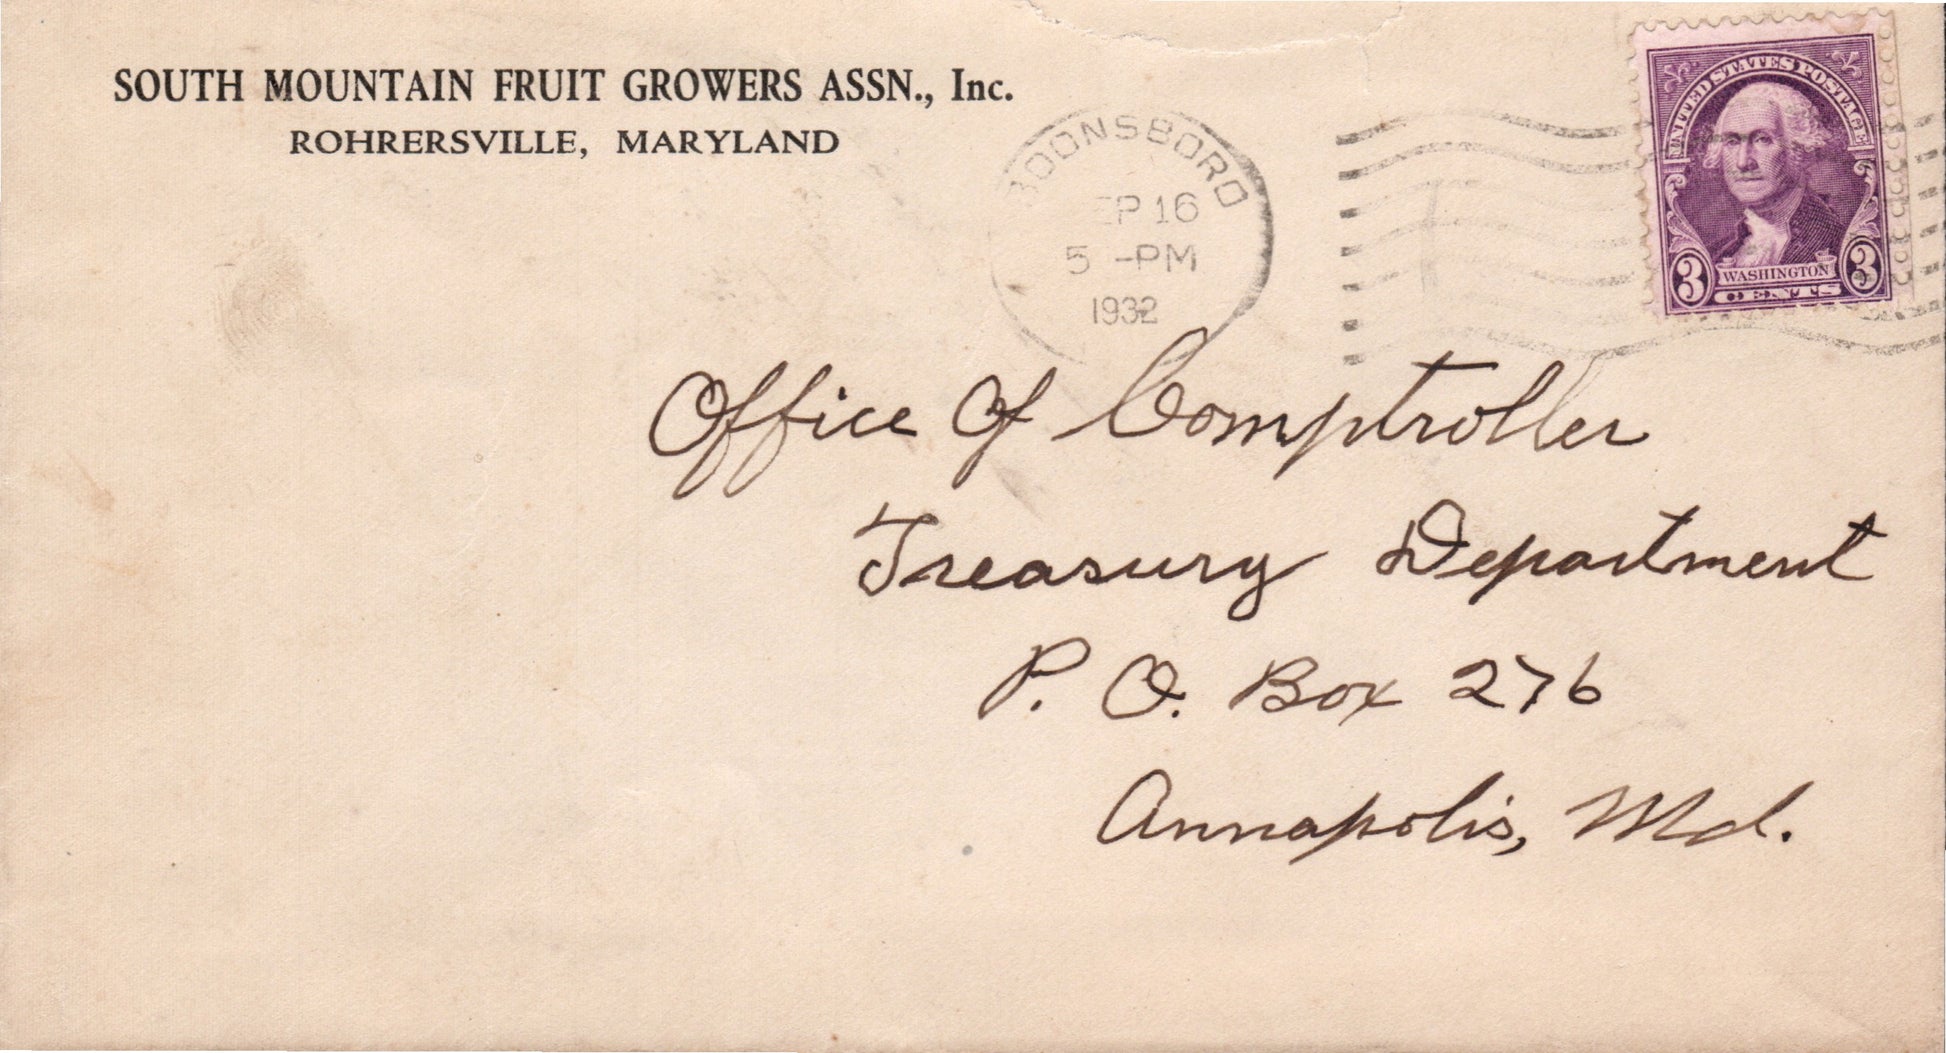 SOUTH MOUNTAIN FRUIT GROWERS ASSN., Inc.
ROHRERSVILLE, MARYLAND
BOONSBORO
SEP 16
5 -PM
1932
UNITED STATES POSTAGE
WASHINGTON
3 3
CENTS
Office Of Comptroller
Treasury Department
P. O. Box 276
Annapolis, Md.